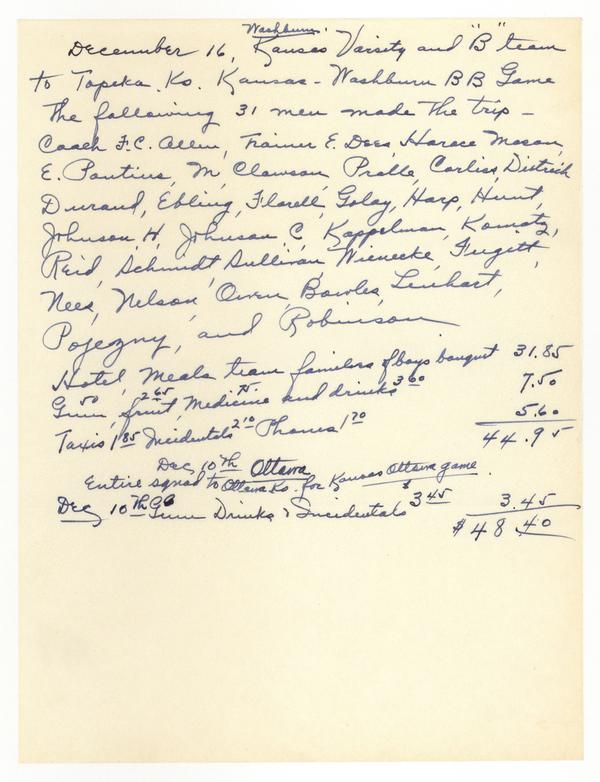 Washburn.
December 16, Kansas Varsity and "B" team
to Topeka Ks. Kansas - Washburn B B Game
The following 31 men made the trip -
Coach F.C. Allen, Trainer E. Dees, Horace Mason
E. Pontius, M Clawson Pralle, Corliss, Dietrich
Durand, Ebling, Florell, Golay, Harp, Hunt,
Johnson, H, Johnson C, Kappelman, Komatz,
Reid, Schmidt, Sullivan, Wienecke, Fugett,
Nees, Nelson, Owen, Bowles, Linhart,
Pojezny, and Robinson
Hotel, Meals team families of boys banquet 31.85
Gum .50, fruit 2.65, Medicine .75 and drinks 3.60 7.50
Taxis 1.85 Incidentals 2.10 Phones 1.70 5.60
44.95
Dec, 10th Ottawa
Entire squad to Ottawa Ks. for Kansas Ottawa game.
Dec 10th Gum Drinks & Incidentals $3.45 3.45
$48.40